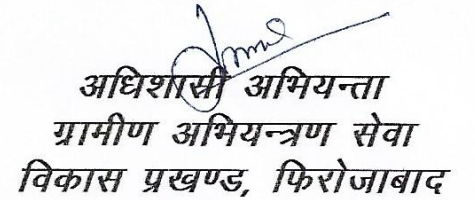 अधिशासी अभियन्ता
ग्रामीण अभियन्त्रण सेवा
विकास प्रखण्ड, फिरोजाबाद